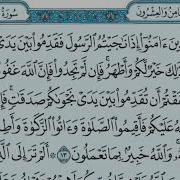 امِنُ وَالعِشْرُونَ سُورَةُ
ينَ ءَامَنُوٓا۟ إِذَا نَٰجَيْتُمُ ٱلرَّسُولَ فَقَدِّمُوا۟ بَيْنَ يَدَىْ
ذَٰلِكَ خَيْرٌ لَّكُمْ وَأَطْهَرُ ۚ فَإِن لَّمْ تَجِدُوا۟ فَإِنَّ ٱللَّهَ غَفُو
فَقْتُمْ أَن تُقَدِّمُوا۟ بَيْنَ يَدَىْ نَجْوَىٰكُمْ صَدَقَٰتٍ ۚ فَإِ
هُ عَلَيْكُمْ فَأَقِيمُوا۟ ٱلصَّلَوٰةَ وَءَاتُوا۟ ٱلزَّكَوٰةَ وَأَط
وَٱللَّهُ خَبِيرٌۢ بِمَا تَعْمَلُونَ ١٣ أَلَمْ تَرَ إِلَى